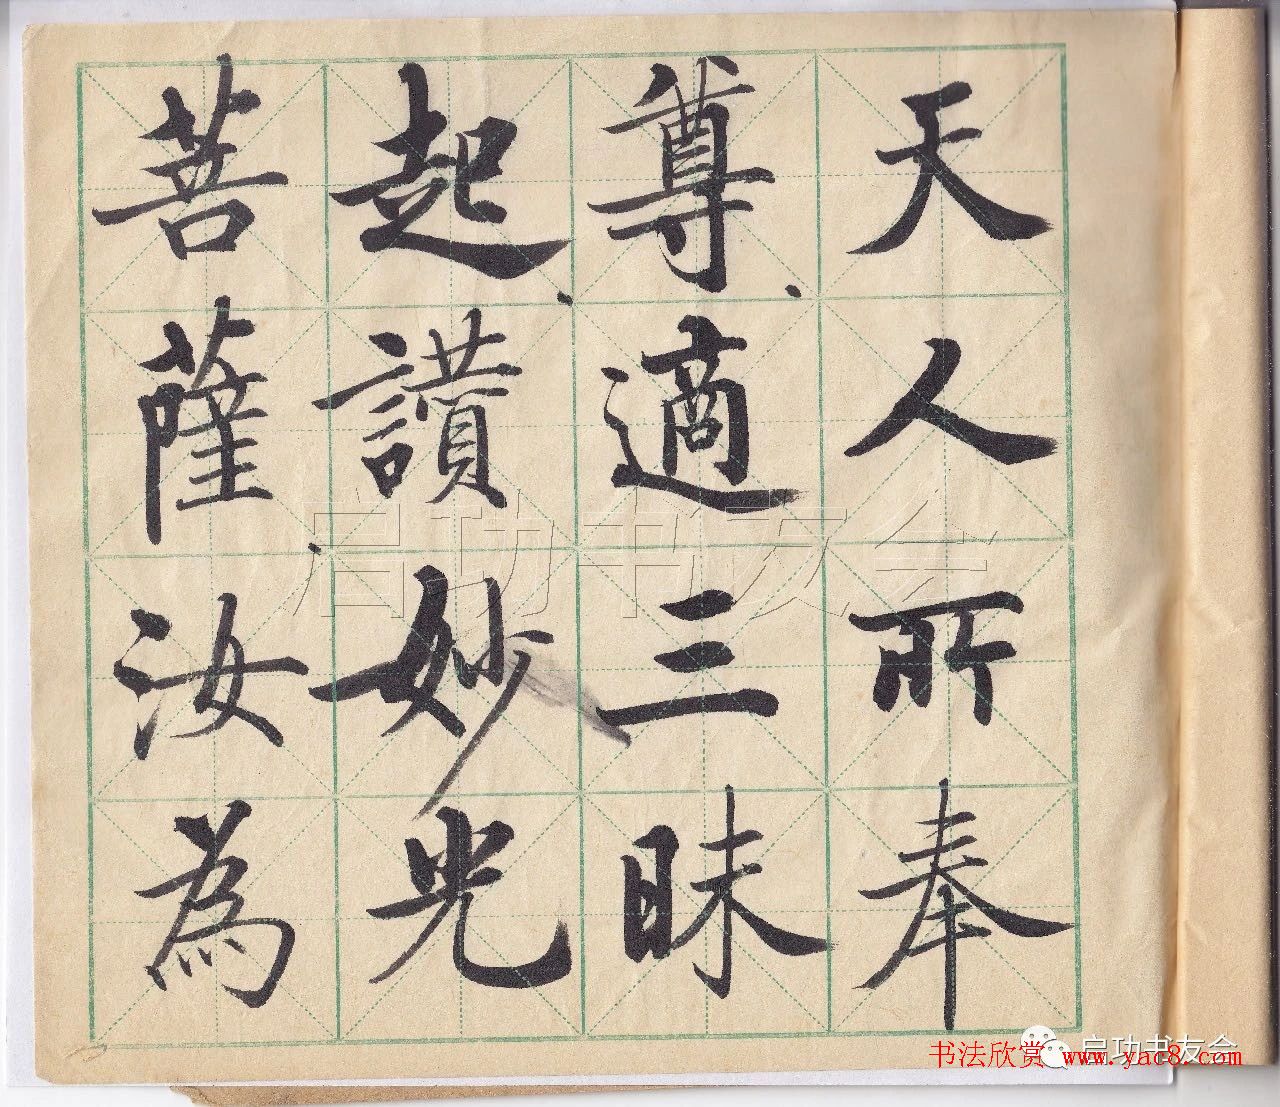 天人所奉
尊適三昧
起讃妙光
菩薩汝為
启功书友会
启功书友会
书法欣赏 www.yac8.com